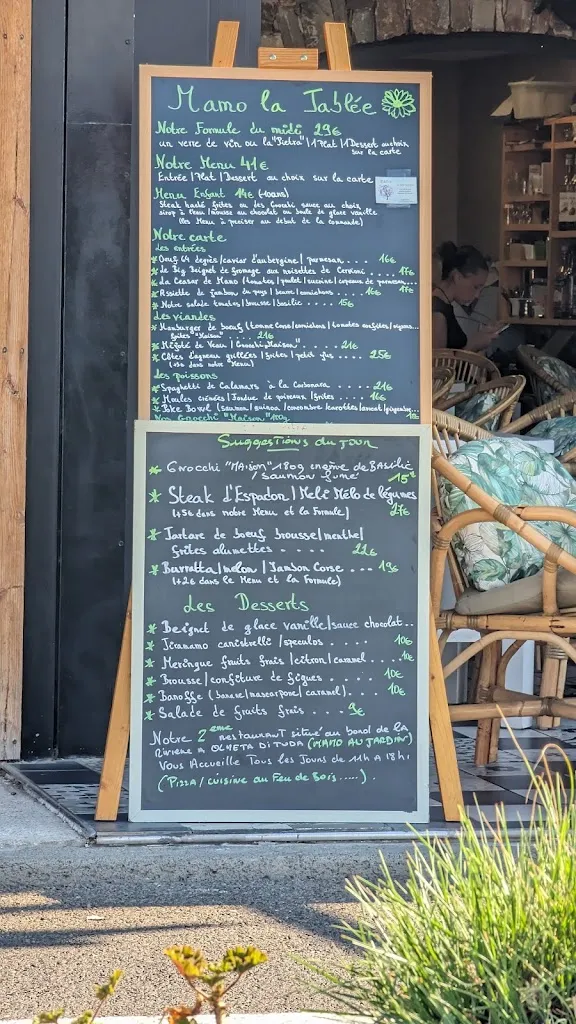 Mamo la Tablée
Notre Formule du midi 29€
un verre de vin ou la "Pietra" | 1 Plat | 1 Dessert au choix
sur la carte
Notre Menu 41€
Entrée | Plat | Dessert au choix sur la carte
Menu Enfant 14€ (-10ans)
Steak haché frites ou des Gnocchi sauce au choix
sirop à l'eau | mousse au chocolat ou boule de glace vanille
(les Menu à préciser au début de la commande)
Notre carte
Les entrées
* Oeuf 64 degrès | caviar d'aubergine | parmesan .... 16€
* Le Big Beignet de fromage aux noisettes de Cervioni .... 17€
* La Ceasar de Mamo (tomates | poulet | sucrine | copeaux de parmesan...
* Assiette de jambon du pays | beurre | cornichons .... 16€ 17€
* Notre salade tomates | brousse | basilic .... 15€
Les viandes
* Hamburger de boeuf (tomme Corse | cornichons | tomates confites | oignons...
frites "Maison" .... 21€
* Mijoté de Veau | Gnocchi "Maison" .... 21€
* Côtes d'agneau grillées | frites | petit jus .... 25€
(+5€ dans notre Menu)
Les poissons
* Spaghetti de Calamars à la Carbonara .... 21€
* Moules crémées | fondue de poireaux | frites .... 18€
* Poke Bowl (saumon | quinoa | concombre | carottes | avocat | gingembre
Nos Gnocchi "Maison" 180g
Suggestions du jour
* Gnocchi "MAison" 180g crème de BASilic
| Saumon fumé 15€
* Steak d'Espadon | Méli Mélo de légumes
(+5€ dans notre Menu et la Formule) 27€
* Tartare de boeuf brousse | menthe |
frites alumettes .... 22€
* Burratta | melon | Jambon Corse ... 19€
(+2€ dans le Menu et la Formule)
Les Desserts
* Beignet de glace vanille | sauce chocolat..
* Tiramamo canistrelli | speculos .... 10€
* Meringue fruits frais | citron | caramel .... 10€
* Brousse | confiture de figues .... 10€
* Banoffe (banane | mascarpone | caramel) ... 10€
* Salade de fruits frais ... 9€
Notre 2eme restaurant situé au bord de la
Rivière A OLMETA DI TUDA (MAMO AU JARDIN)
Vous Accueille Tous les Jours de 11h A 18h
(Pizza / cuisine au Feu de Bois .....).